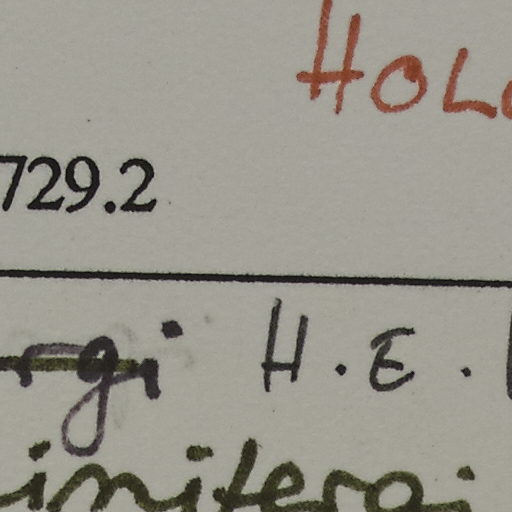 HOLO
729.2
rgi H.E.
initergi